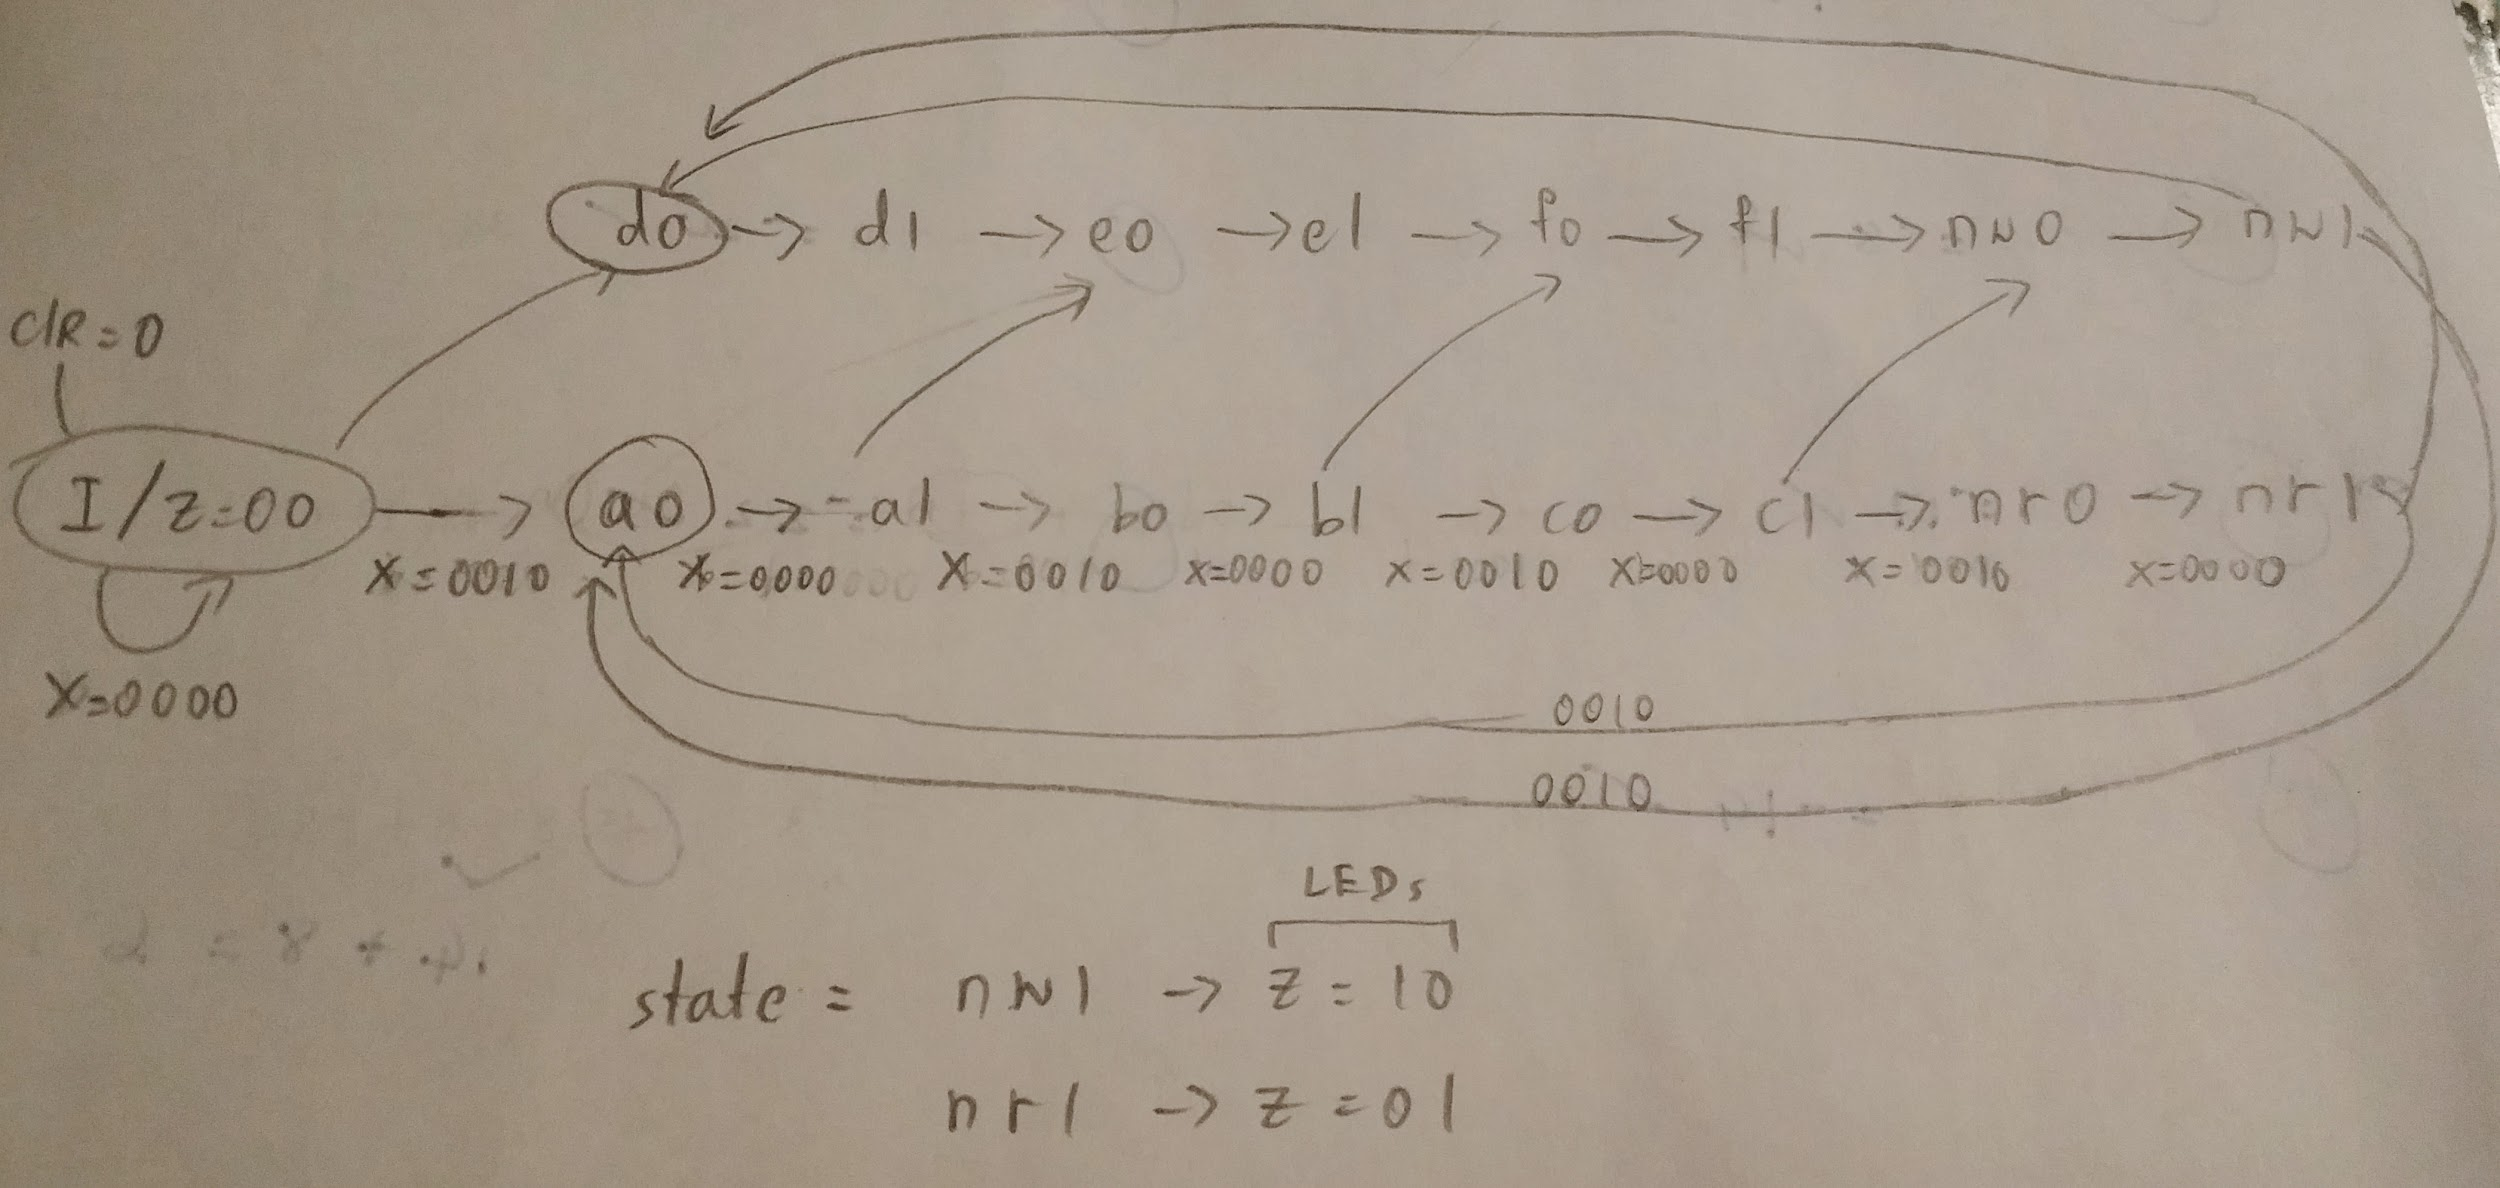 d0 -> d1 -> e0 -> e1 -> f0 -> f1 -> nw0 -> nw1
ClR=0
I/Z=00 -> a0 -> a1 -> b0 -> b1 -> c0 -> c1 -> nr0 -> nr1
X=0010 X=0000 X=0010 X=0000 X=0010 X=0000 X=0010 X=0000
X=0000
0010
0010
LEDs
state = nw1 -> Z=10
nr1 -> Z=01